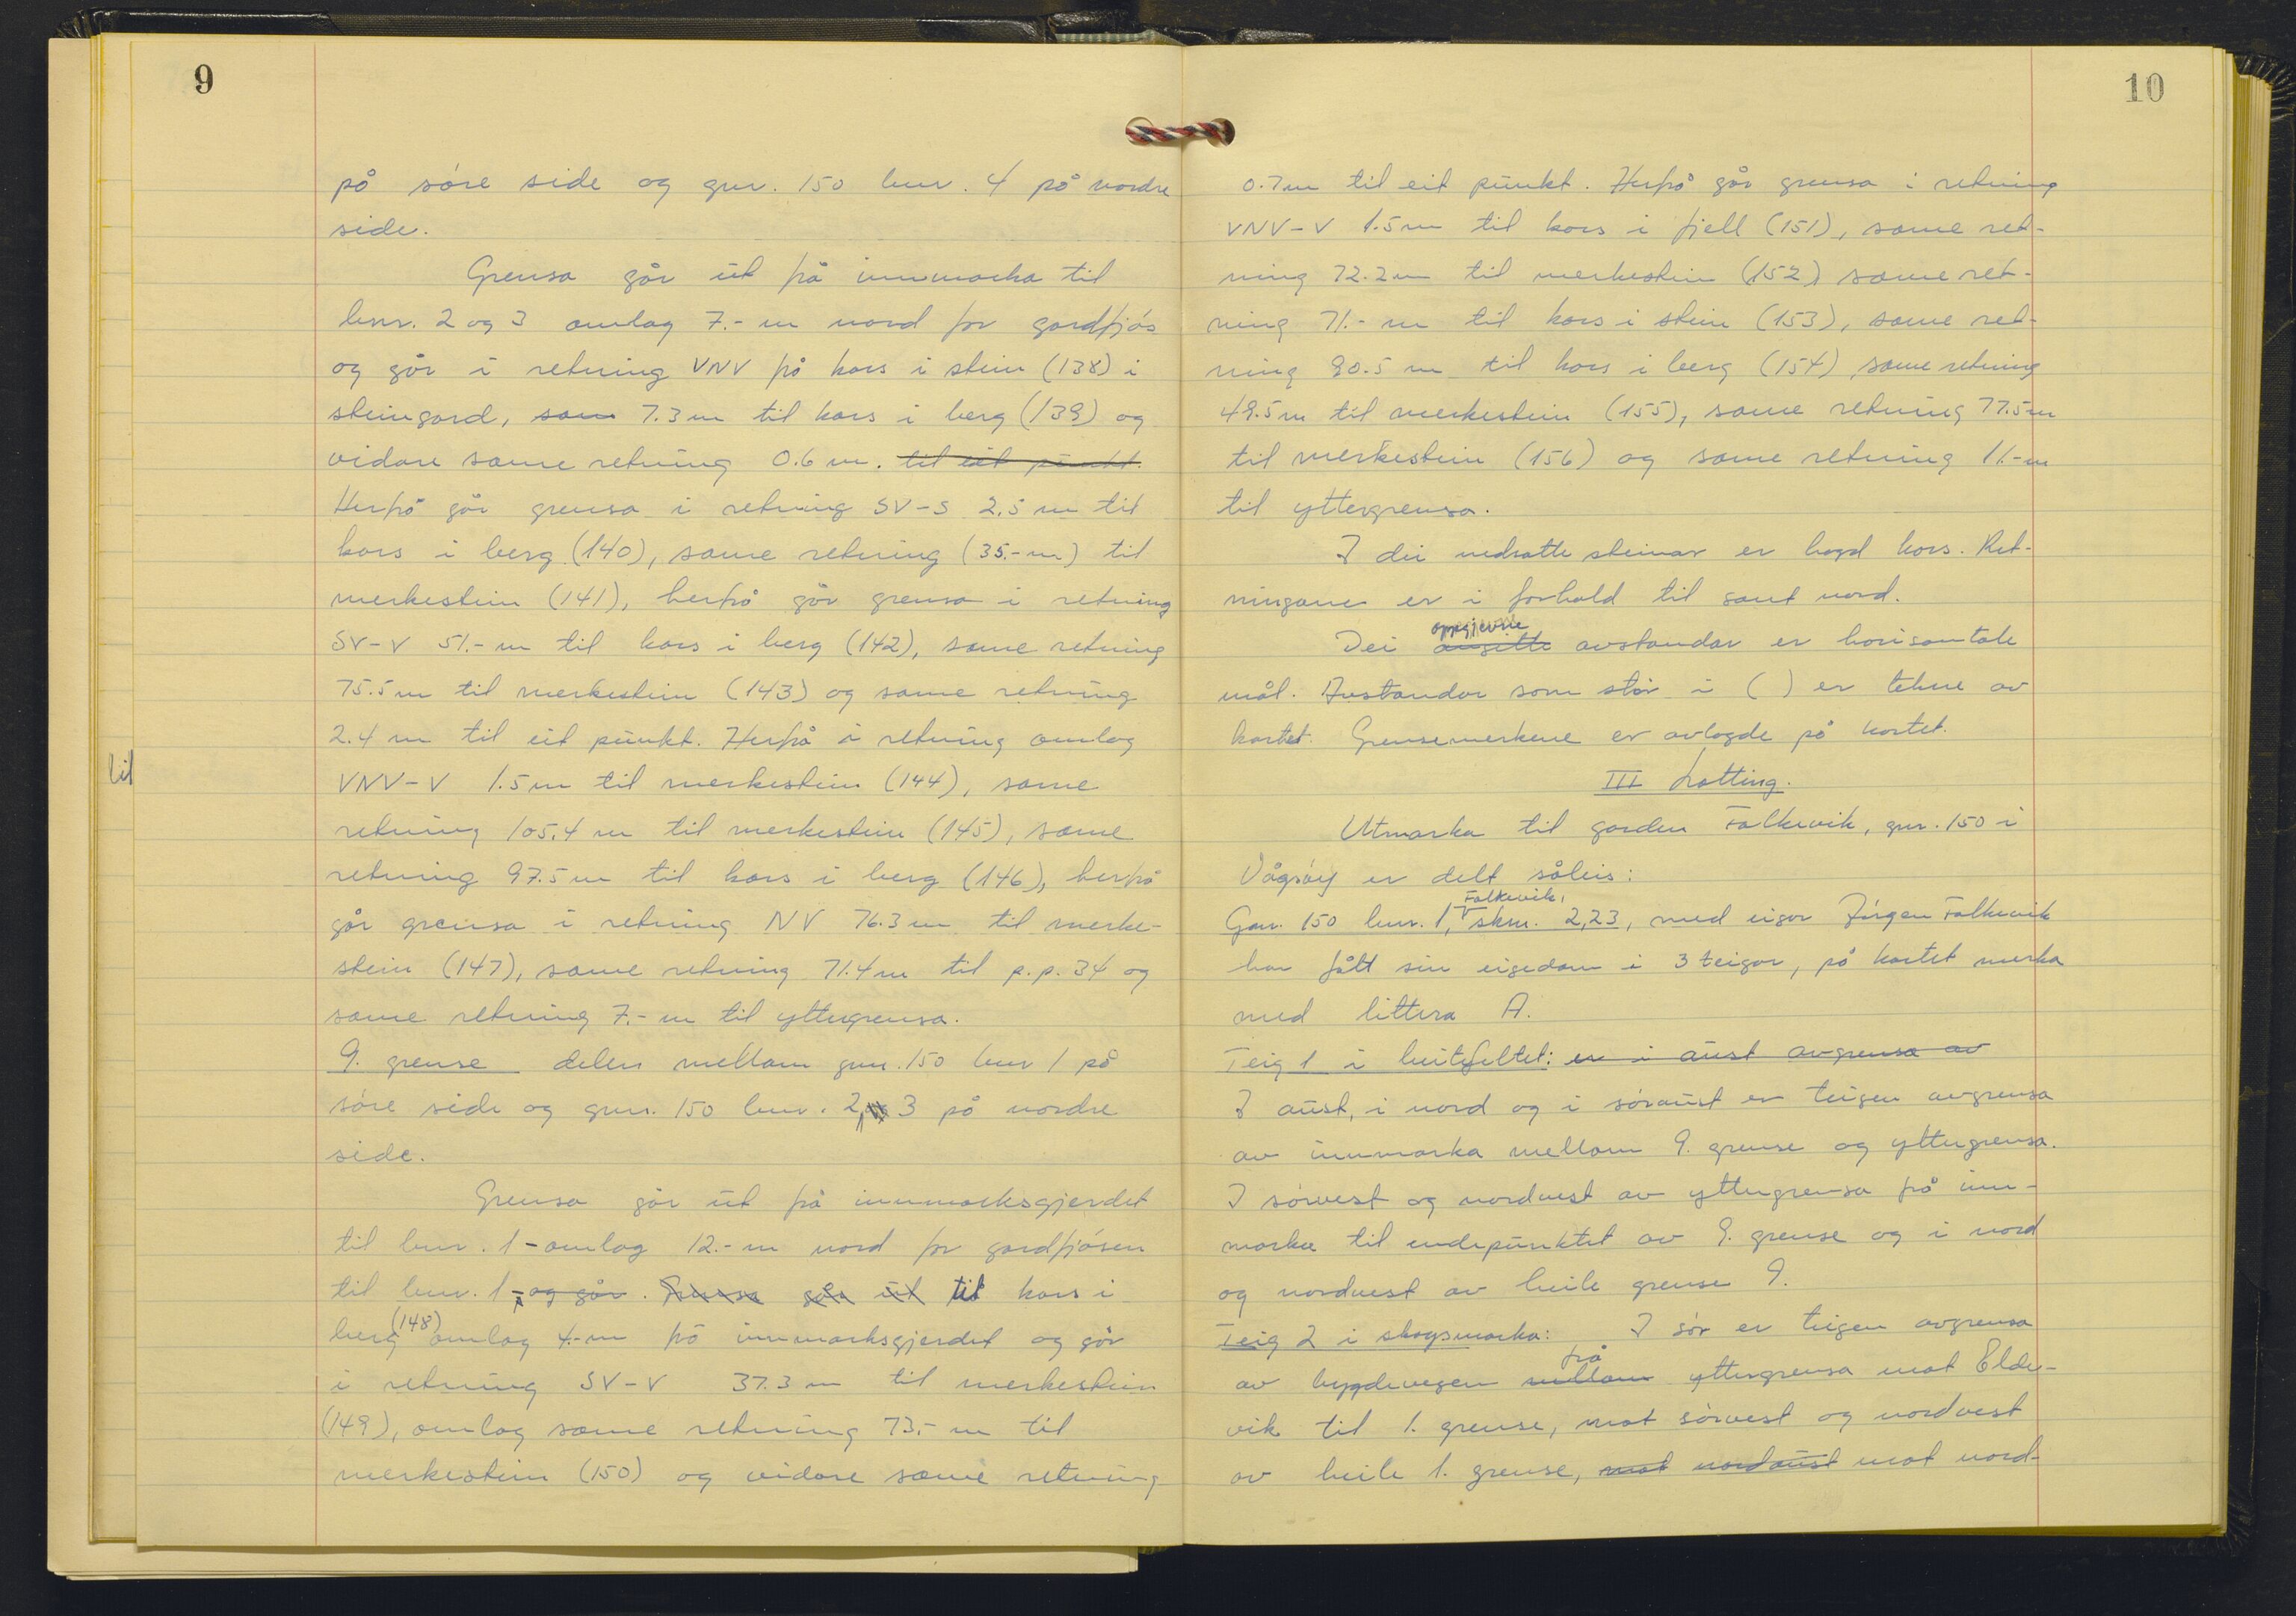 9
på søre side og gnr. 150 bnr. 4 på nordre
side.
Grensa går ut frå innmarka til
bnr. 2 og 3 omlag 7.- m nord for gardfjøs
og går i retning VNV på kors i stein (138) i
steingard, som 7.3 m til kors i berg (139) og
vidare same retning 0.6 m. til eit punkt.
Herfrå går grensa i retning SV-S 2.5 m til
kors i berg (140), same retning (35.-m) til
merkestein (141), herfrå går grensa i retning
SV-V 51.- m til kors i berg (142), same retning
75.5 m til merkestein (143) og same retning
2.4 m til eit punkt. Herfrå i retning omlag
til
VNV-V 1.5 m til merkestein (144), same
retning 105.4 m til merkestein (145), same
retning 97.5 m til kors i berg (146), herfrå
går grensa i retning NV 76.3 m til merke-
stein (147), same retning 71.4 m til p.p. 34 og
same retning 7.- m til yttergrensa.
9. grense deler mellom gnr. 150 bnr 1 på
søre side og gnr. 150 bnr. 2, 3 på nordre
side.
Grensa går ut frå innmarksgjerdet
til bnr. 1 - omlag 12.- m nord for gardfjøsen
til bnr. 1 - og går. Grensa går ut til kors i
berg (148) omlag 4.- m frå innmarksgjerdet og går
i retning SV-V 37.3 m til merkestein
(149), omlag same retning 73.- m til
merkestein (150) og vidare same retning
10
0.7 m til eit punkt. Herfrå går grensa i retning
VNV-V 1.5 m til kors i fjell (151), same ret-
ning 72.2 m til merkestein (152) same ret-
ning 71.- m til kors i stein (153), same ret-
ning 90.5 m til kors i berg (154), same retning
49.5 m til merkestein (155), same retning 77.5 m
til merkestein (156) og same retning 11.- m
til yttergrensa.
I dei nedsatte steinar er hogd kors. Ret-
ningane er i forhold til sant nord.
oppgjevne
Dei avsette avstandar er horisontale
mål. Avstandar som står i ( ) er tekne av
kartet. Grensemerkene er avlagde på kartet.
III Lotting.
Utmarka til garden Falkevik, gnr. 150 i
Vågsøy er delt såleis:
Falkevik,
Gnr. 150 bnr. 1, skm. 2,23, med eigar Jørgen Falkevik
har fått sin eigedom i 3 teigar, på kartet merka
med littera A.
Teig 1 i beitefeltet: er i aust avgrensa av
I aust, i nord og i søraust er teigen avgrensa
av innmarka mellom 9. grense og yttergrensa.
I sørvest og nordvest av yttergrensa frå inn-
marka til endepunktet av 9. grense og i nord
og nordvest av heile grense 9.
Teig 2 i skogsmarka: I sør er teigen avgrensa
frå
av bygdevegen mellom yttergrensa mot Elde-
vik til 1. grense, mot sørvest og nordvest
av heile 1. grense, mot nordaust mot nord-